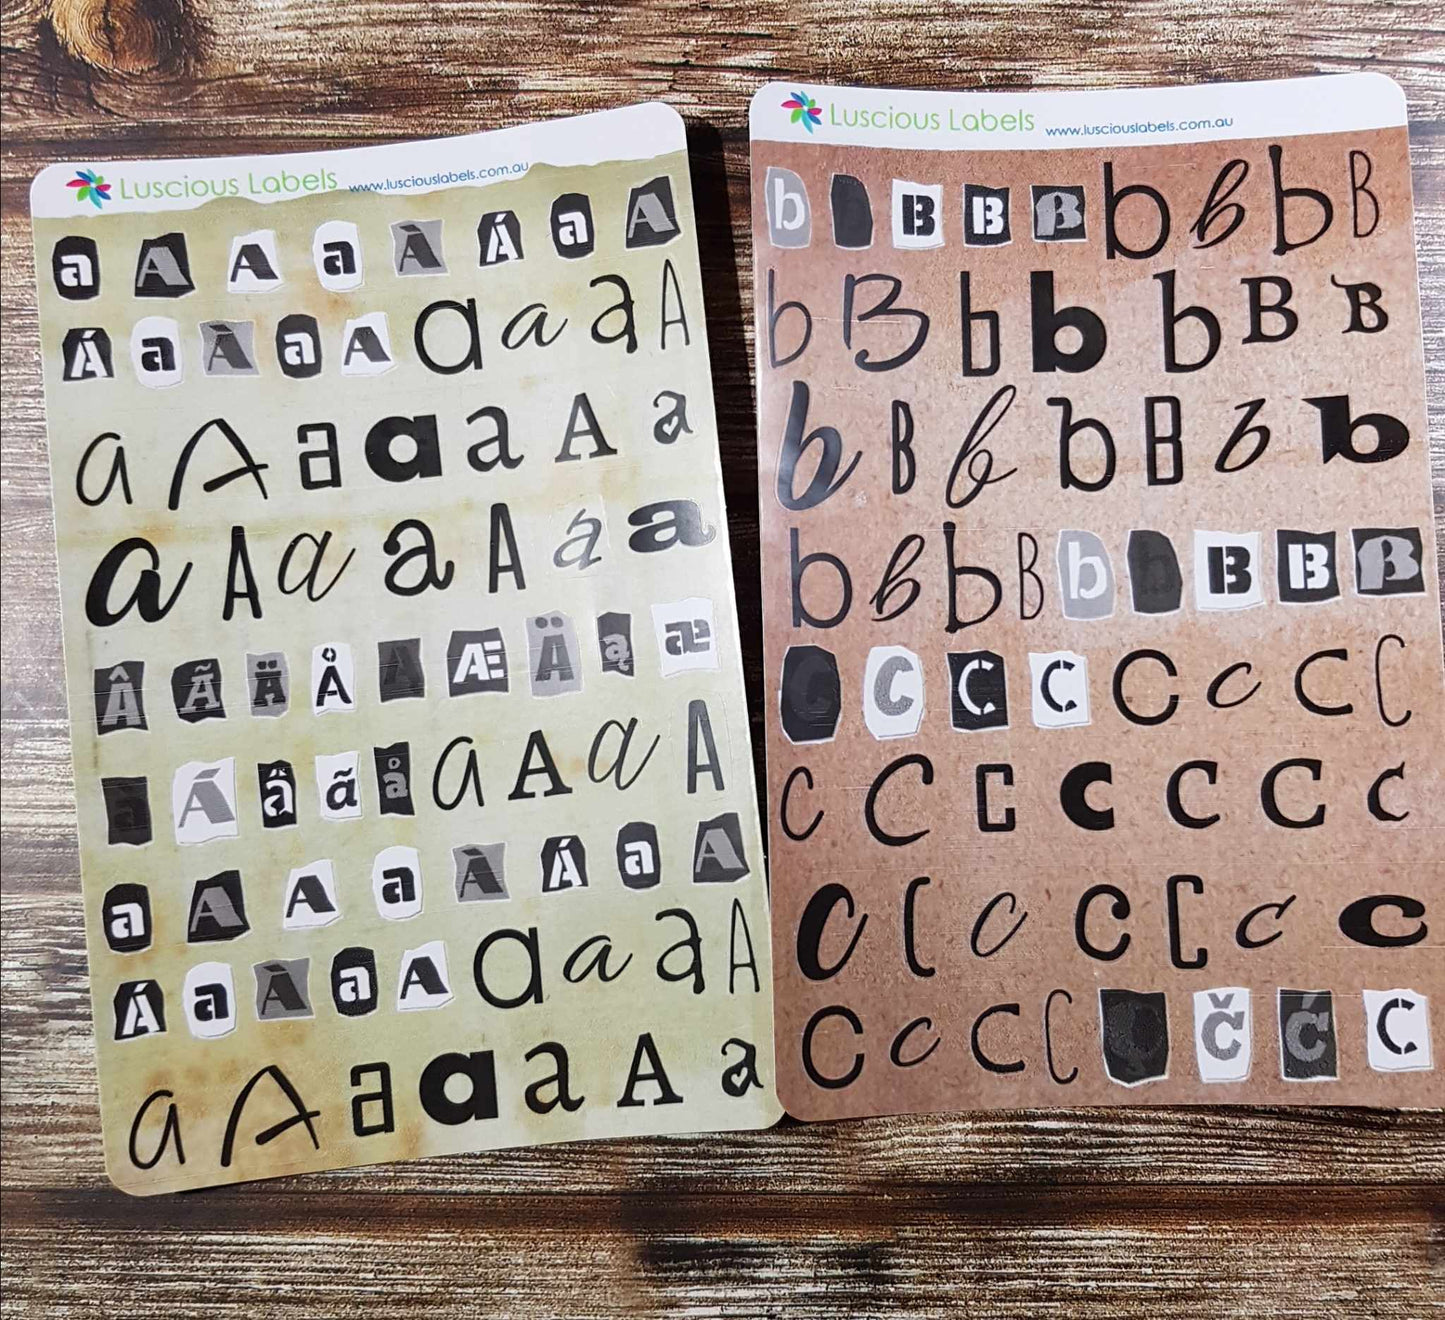 Luscious Labels www.lusciouslabels.com.au
a A A a À Á a A
Á a À a A a a a A
a A a a a A a
a A a a A a a
Â Ã Ä Å A Æ Ä ą æ
a Á â ã å a A a A
a A A a À Á a A
Á a À a A a a a A
a A a a a A a
Luscious Labels www.lusciouslabels.com.au
b B B ß b b b B
b B b b b B B
b B b b B b b
b b b B b b B B ß
C C C C C c C C
C C C C C C C
C C C C C C C
C C C C Č Ć C